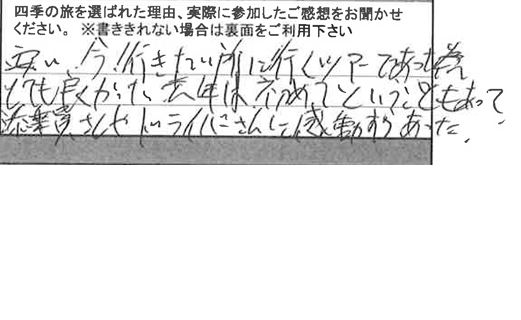 四季の旅を選ばれた理由、実際に参加したご感想をお聞かせ
ください。 ※書ききれない場合は裏面をご利用下さい
安い、今!行きたい所に行くツアーであった為
とても良かった 去年は初めてということもあって
添乗員さんやドライバーさんに感動すらあった.